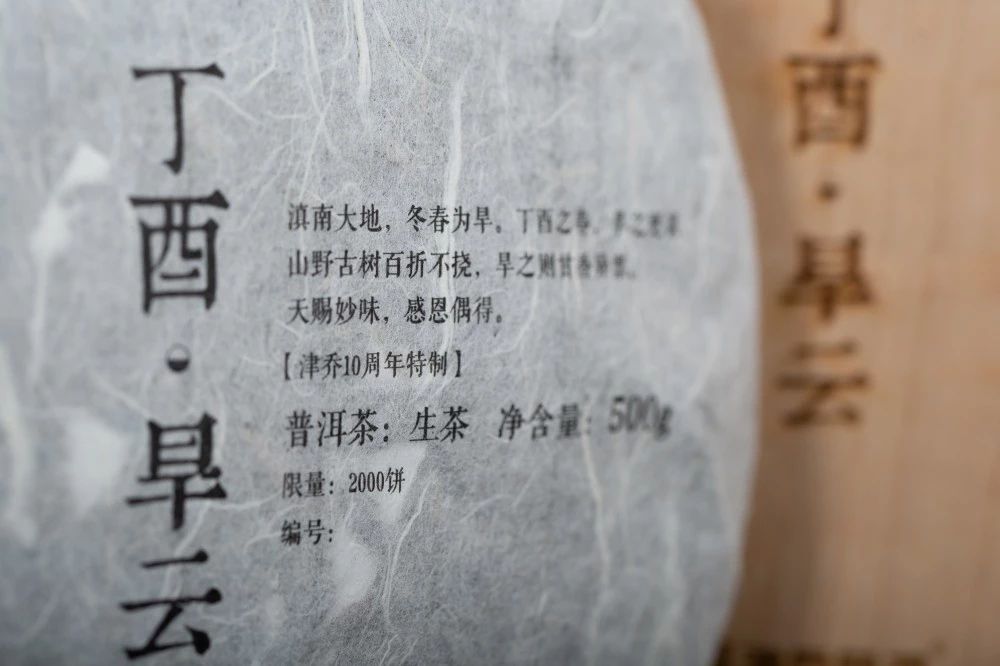 丁酉·旱云
滇南大地，冬春为旱。丁酉之春，
山野古树百折不挠，旱之则甘香
天赐妙味，感恩偶得。
【津乔10周年特制】
普洱茶：生茶 净含量：500g
限量：2000饼
编号：
丁酉·旱云